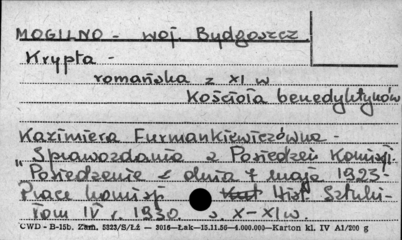 MOGILNO - woj. Bydgoszcz
Krypta -
romańska z XI w
Kościoła benedyktynów
Kazimiera Furmankiewiczówna -
"Sprawozdania z Posiedzeń Komisji.
Posiedzenie z dnia 7 maja 1925-
Prace Komisji Hist. Sztuki-
Tom IV r. 1930 s. X-XI w.
CWD - B-15b. Zam. 5823/S/Łź — 3016—Łak—15.11.56—4.000.000—Karton kl. IV A1/200 g